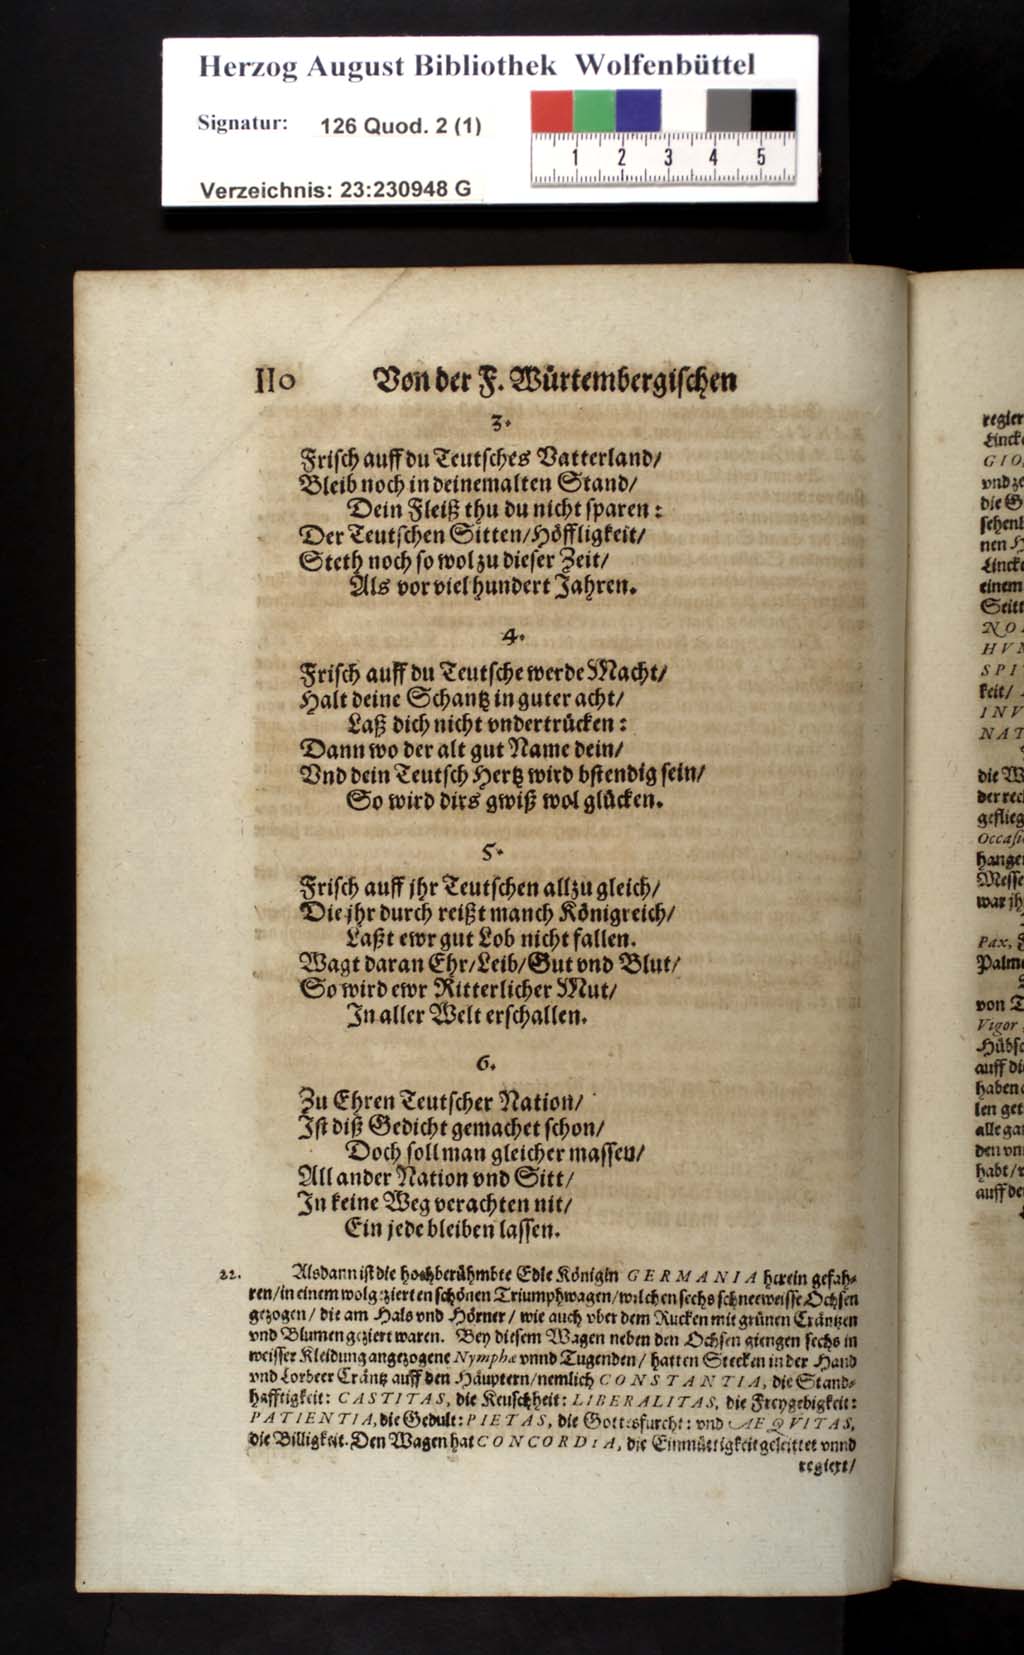 Herzog August Bibliothek Wolfenbüttel
Signatur: 126 Quod. 2 (1)
1 2 3 4 5
Verzeichnis: 23:230948 G
110 Von der F. Würtembergischen
3.
Frisch auff du Teutsches Vatterland/
Bleib noch in deinem alten Stand/
Dein Fleiß thu du nicht sparen:
Der Teutschen Sitten/Höffligkeit/
Steth noch so wol zu dieser Zeit/
Als vor viel hundert Jahren.
4.
Frisch auff du Teutsche werde Macht/
Halt deine Schantz in guter acht/
Laß dich nicht vndertrücken:
Dann wo der alt gut Name dein/
Vnd dein Teutsch Hertz wird bstendig sein/
So wird dirs gwiß wol glücken.
5.
Frisch auff jhr Teutschen all zu gleich/
Die jhr durch reißt manch Königreich/
Laßt ewr gut Lob nicht fallen.
Wagt daran Ehr/Leib/Gut vnd Blut/
So wird ewr Ritterlicher Mut/
In aller Welt erschallen.
6.
Zu Ehren Teutscher Nation/
Ist diß Gedicht gemachet schon/
Doch soll man gleicher massen/
All ander Nation vnd Sitt/
In keine Weg verachten nit/
Ein jede bleiben lassen.
22. Alsdann ist die hochberühmbte Edle Königin GERMANIA herein gefah-
ren/in einem wolgezierten schönen Triumphwagen/welchen sechs schneeweisse Ochsen
gezogen/ die am Hals vnd Hörner/ wie auch vber dem Rucken mit grünen Cräntzen
vnd Blumen geziert waren. Bey diesem Wagen neben den Ochsen giengen sechs in
weisser Kleidung angezogene Nymphæ vnnd Tugenden/ hatten Stecken in der Hand
vnd Lorbeer Cräntz auff den Häuptern/nemlich CONSTANTIA, die Stand-
hafftigkeit: CASTITAS, die Keuschheit: LIBERALITAS, die Freygebigkeit:
PATIENTIA, die Gedult: PIETAS, die Gottesfurcht: vnd AEQVITAS,
die Billigkeit. Den Wagen hat CONCORDIA, die Einmüttigkeit geleittet vnnd
regiert/